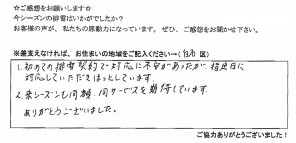 ☆ご感想をお願いします☆
今シーズンの排雪はいかがでしたか？
お客様の声が、私たちの原動力になっています。ぜひ、ご感想をお聞かせ下さい。
※差支えなければ、お住まいの地域をご記入ください→( 区)
1. 初めての排雪契約で対応に不安があったが、指定日に
対応していただきほっとしています。
2. 来シーズンも同額、同サービスを期待しています。
ありがとうございました。
ご協力ありがとうございました！